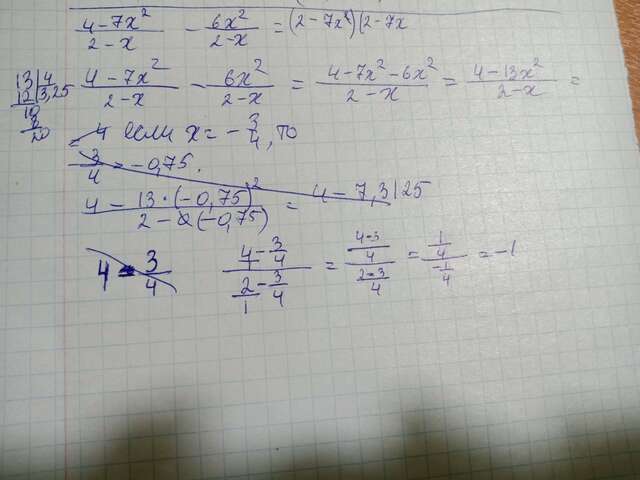 (4-7x²)/(2-x) - 6x²/(2-x) = (2-7x²)(2-7x
13|4
12|3,25
10
8
20
(4-7x²)/(2-x) - 6x²/(2-x) = (4-7x²-6x²)/(2-x) = (4-13x²)/(2-x) =
= 4 если x = -3/4, то
-3/4 = -0,75.
(4-13·(-0,75)²)/(2-(-0,75)) = 4-7,3125
4-3/4
(4-3/4)/(2/1-3/4) = ((4-3)/4)/((2-3)/4) = (1/4)/(-1/4) = -1